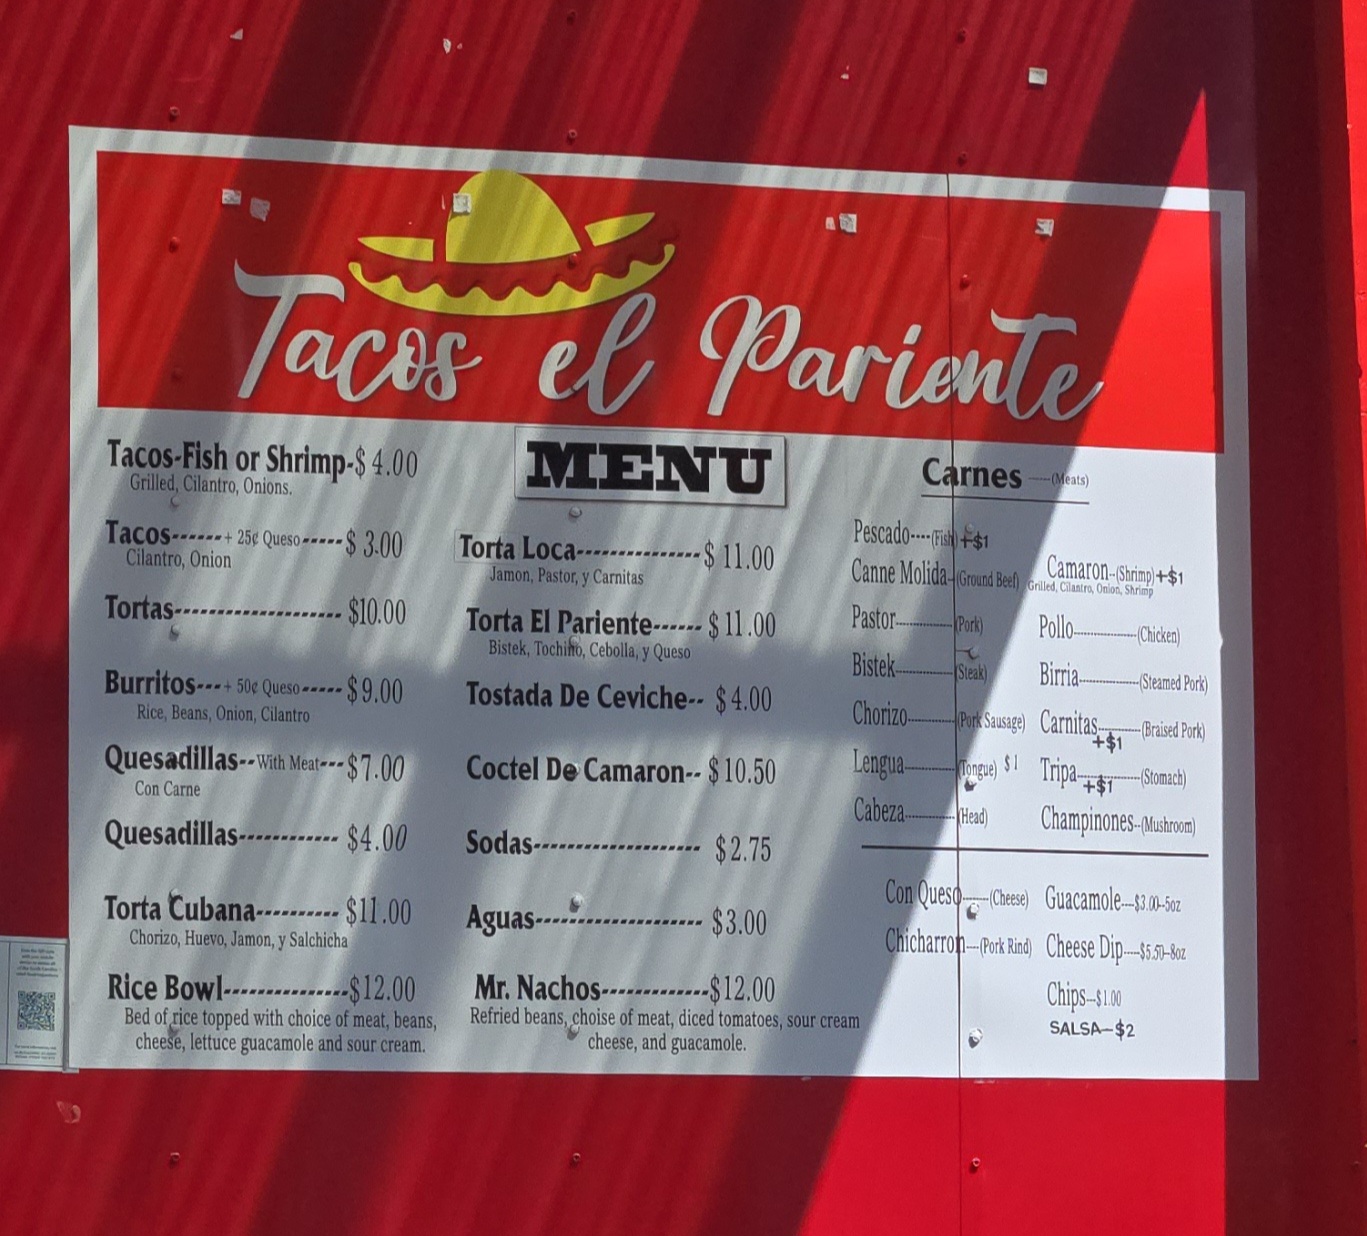 Tacos el Pariente
MENU
Tacos-Fish or Shrimp-$4.00
Grilled, Cilantro, Onions.
Tacos------+ 25¢ Queso-----$ 3.00
Cilantro, Onion
Tortas------------------$10.00
Burritos---+ 50¢ Queso-----$9.00
Rice, Beans, Onion, Cilantro
Quesadillas--With Meat---$7.00
Con Carne
Quesadillas-----------$4.00
Torta Cubana----------$11.00
Chorizo, Huevo, Jamon, y Salchicha
Rice Bowl--------------$12.00
Bed of rice topped with choice of meat, beans,
cheese, lettuce guacamole and sour cream.
Torta Loca---------------$ 11.00
Jamon, Pastor, y Carnitas
Torta El Pariente------$ 11.00
Bistek, Tochiño, Cebolla, y Queso
Tostada De Ceviche--$4.00
Coctel De Camaron--$10.50
Sodas--------------------$2.75
Aguas--------------------$3.00
Mr. Nachos-------------$12.00
Refried beans, choise of meat, diced tomatoes, sour cream
cheese, and guacamole.
Carnes-----(Meats)
Pescado----(Fish) +$1
Canne Molida-(Ground Beef)
Pastor------------(Pork)
Bistek------------(Steak)
Chorizo----------(Pork Sausage)
Lengua----------(Tongue) $1
Cabeza----------(Head)
Camaron--(Shrimp)+$1
Grilled, Cilantro, Onion, Shrimp
Pollo-------------(Chicken)
Birria-------------(Steamed Pork)
Carnitas---------(Braised Pork)
+$1
Tripa-------------(Stomach)
+$1
Champinones--(Mushroom)
Con Queso------(Cheese)
Chicharron--(Pork Rind)
Guacamole---$3.00-5oz
Cheese Dip----$5.50-8oz
Chips--$1.00
SALSA-$2